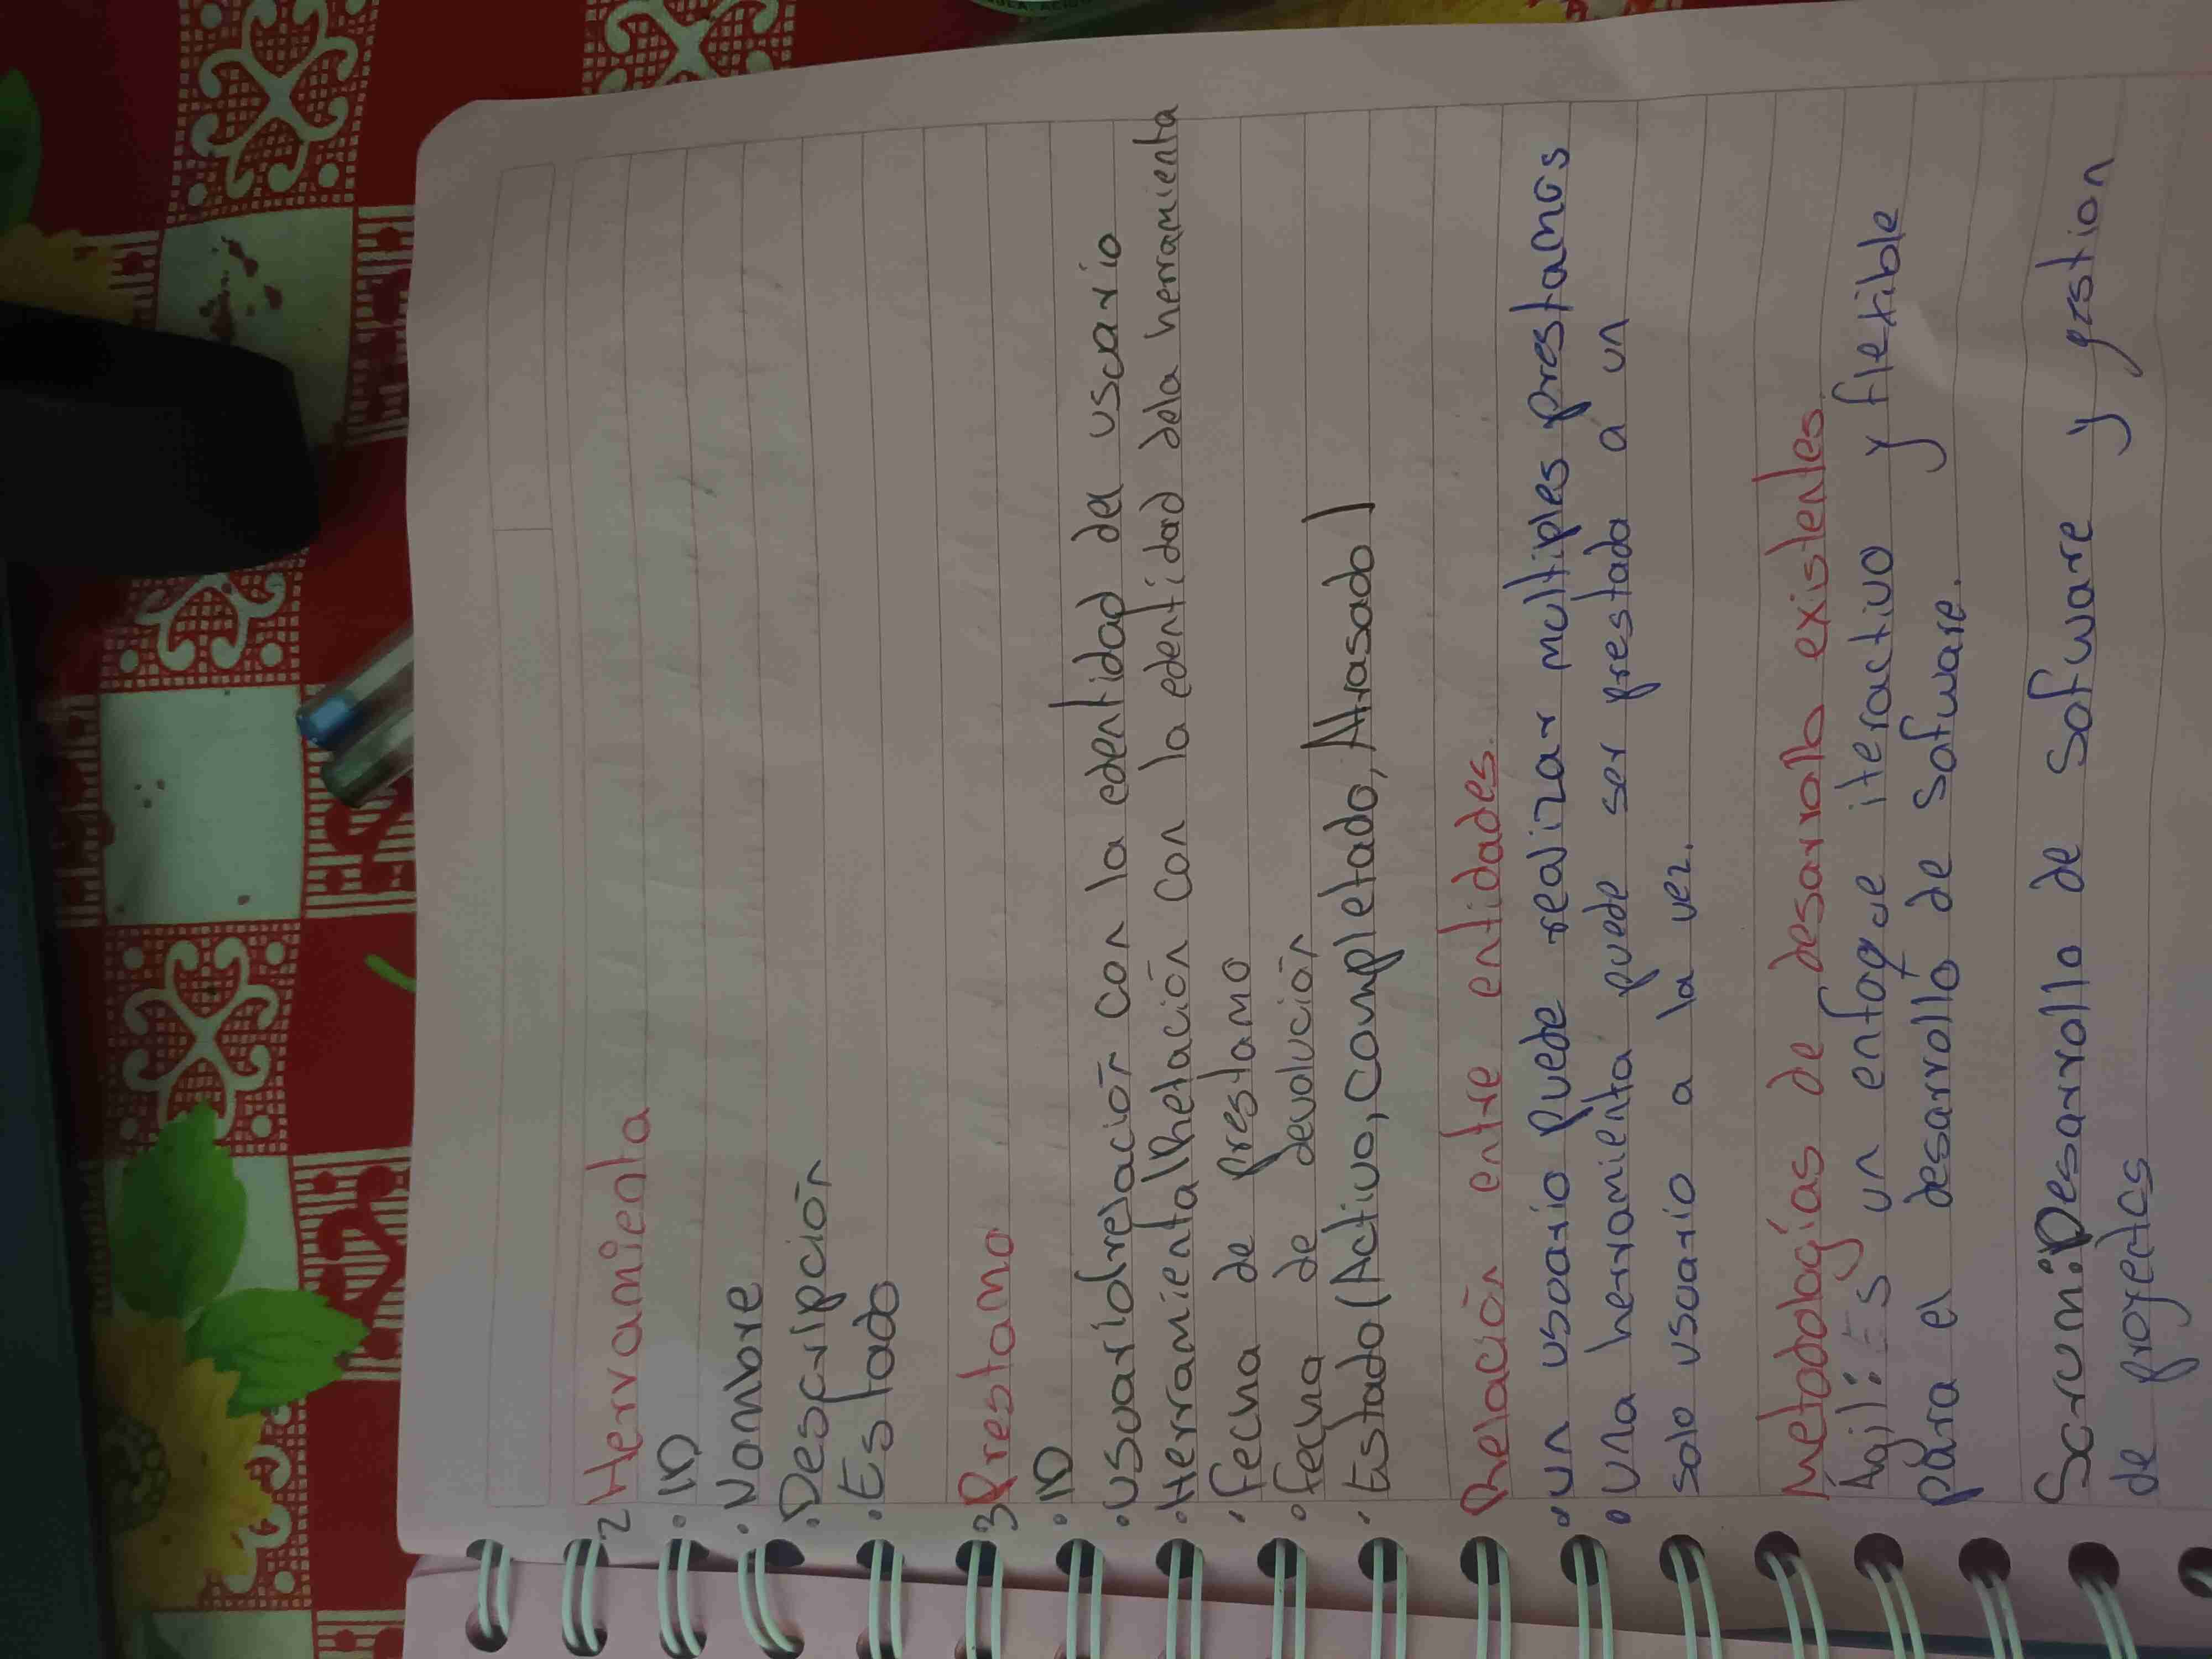 2 Herramienta
· ID
· Nombre
· Descripción
· Estado
3 Prestamo
· ID
· usuario(relación con la edentidad del usuario
· Herramienta(Relación con la edentidad dela herramienta
· fecha de prestamo
· fecha de devolución
· Estado(Activo, completado, Atrasado)
Relación entre entidades.
· un usuario puede realizar multiples prestamos
· una herramienta puede ser prestada a un
solo usuario a la vez.
Metodologías de desarrollo existentes.
Agil: Es un enfoque iteractivo y flexible
para el desarrollo de Sofware.
Scrum: Desarrollo de Sofware y gestion
de proyectos